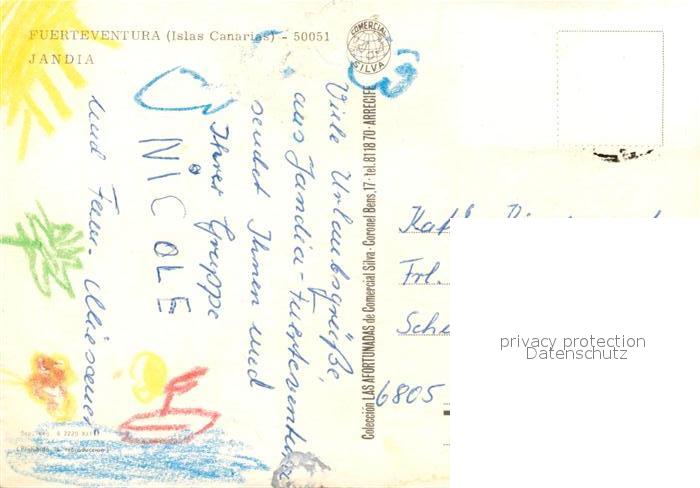 FUERTEVENTURA (Islas Canarias) - 50051
JANDIA
COMERCIAL
SILVA
Colección LAS AFORTUNADAS de Comercial Silva - Coronel Bens, 17 - tel. 81 18 70 - ARRECIFE
Viele Urlaubsgrüße,
aus Jandia-Fuerteventura
sendet Ihnen und
Ihrer Gruppe
NiCOLE
und Fam.
Kath.
Frl.
6805
privacy protection
Datenschutz